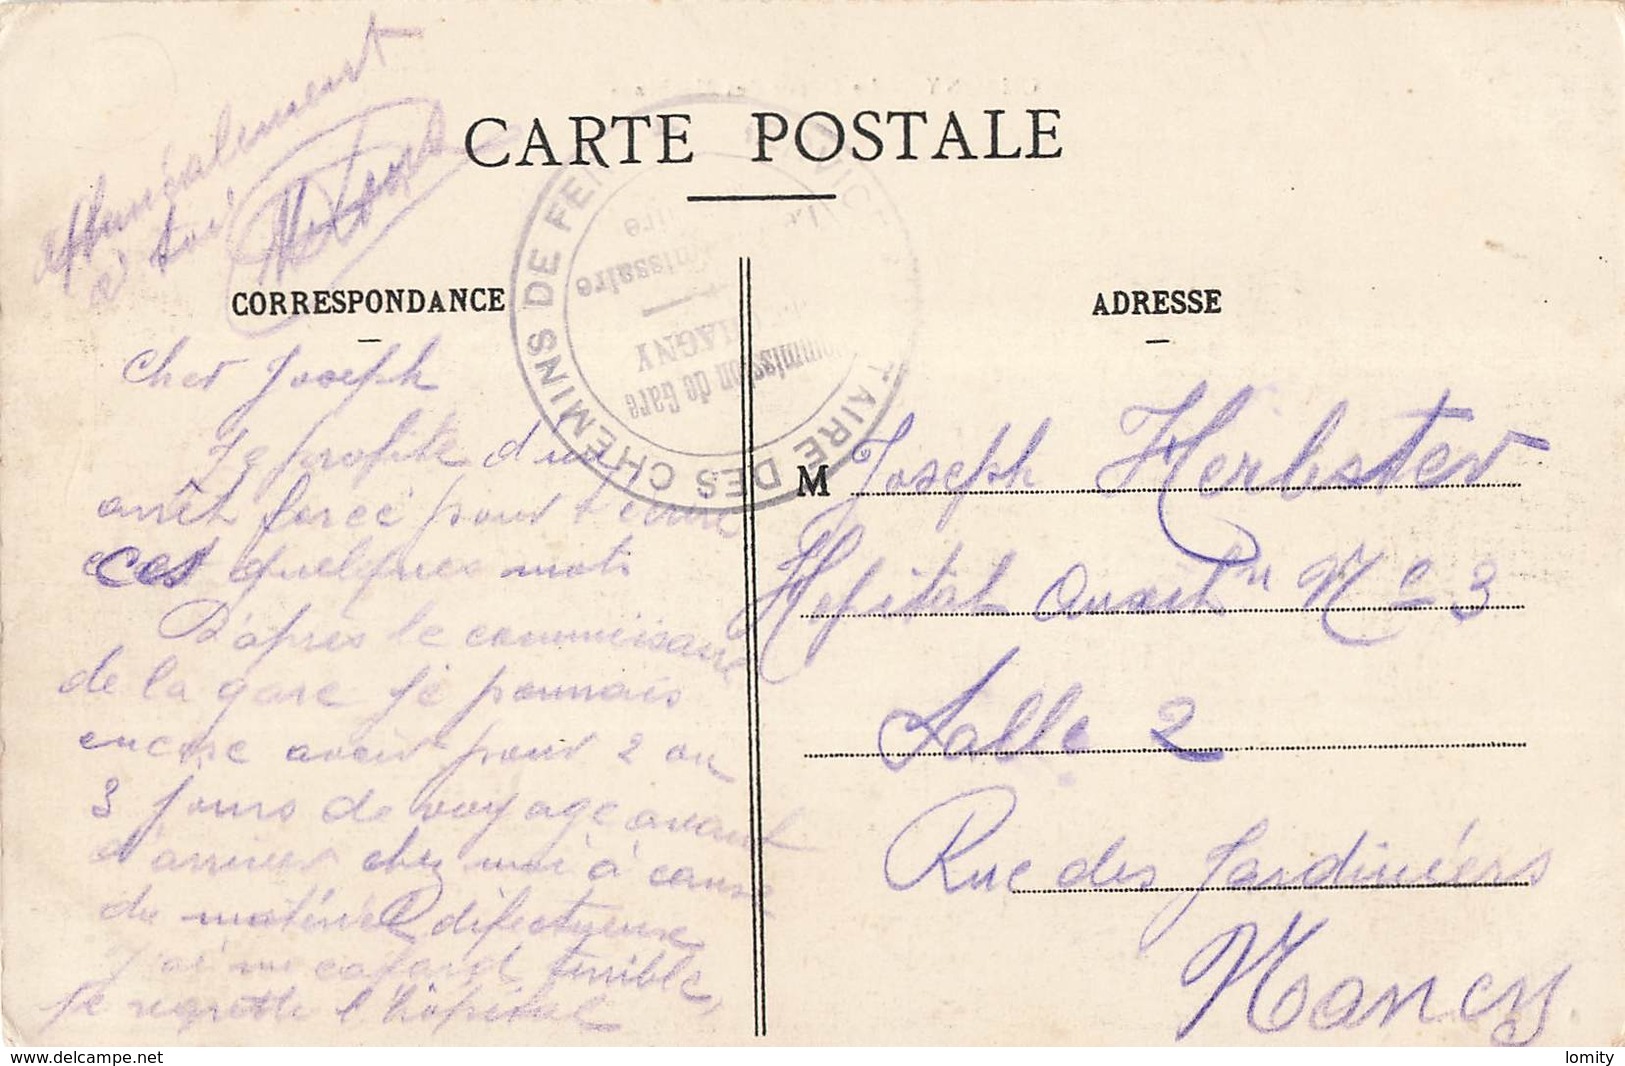 CARTE POSTALE
CORRESPONDANCE
Cher Joseph
Je profite d'un
arrêt forcé pour t'écrire
ces quelques mots
D'après le commissaire
de la gare je pourrais
encore avoir pour 2 ou
3 jours de voyage avant
d'arriver chez moi à cause
du matériel difectueuse
J'ai un cafard terrible,
je regrette l'hôpital
à toi
SERVICE MILITAIRE DES CHEMINS DE FER
Commission de Gare
CHAGNY
Commissaire
Militaire
ADRESSE
M Joseph Herbster
Hopital Auxil N° 3
Salle 2
Rue des Jardiniérs
Nancy
https://www.delcampe.net
lomity